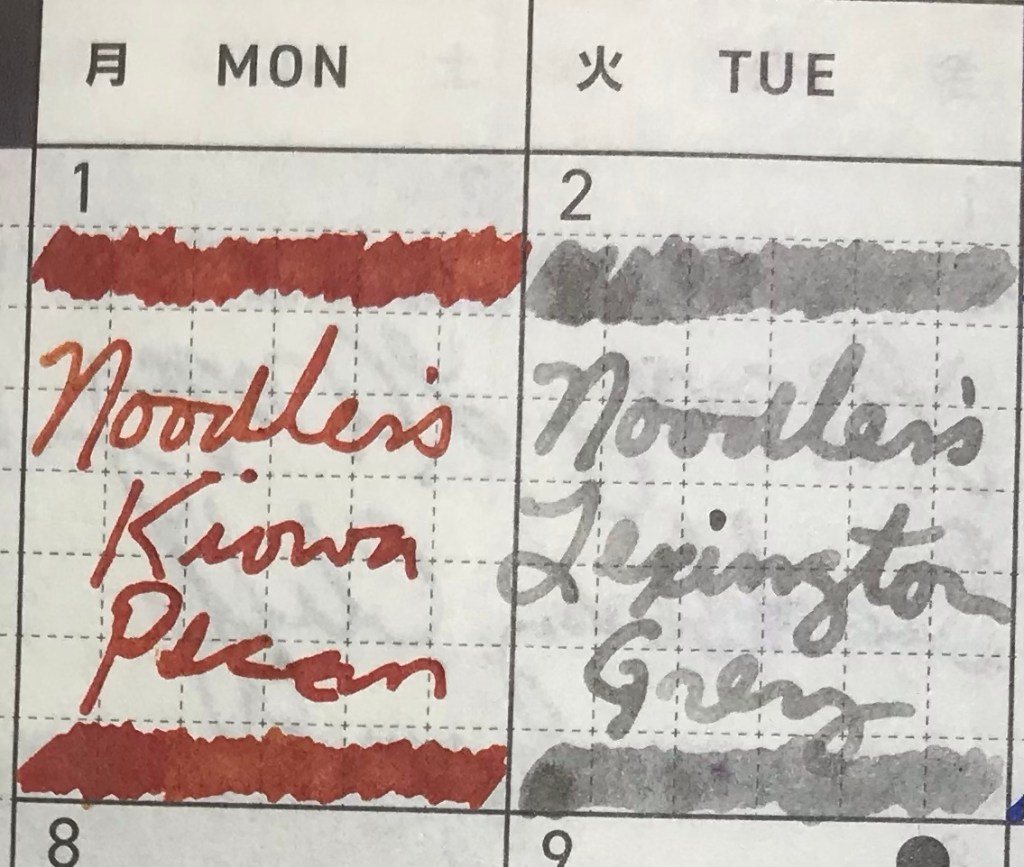 月 MON 火 TUE
1 2
Noodler's
Kiowa
Pecan
Noodler's
Lexington
Grey
8 9